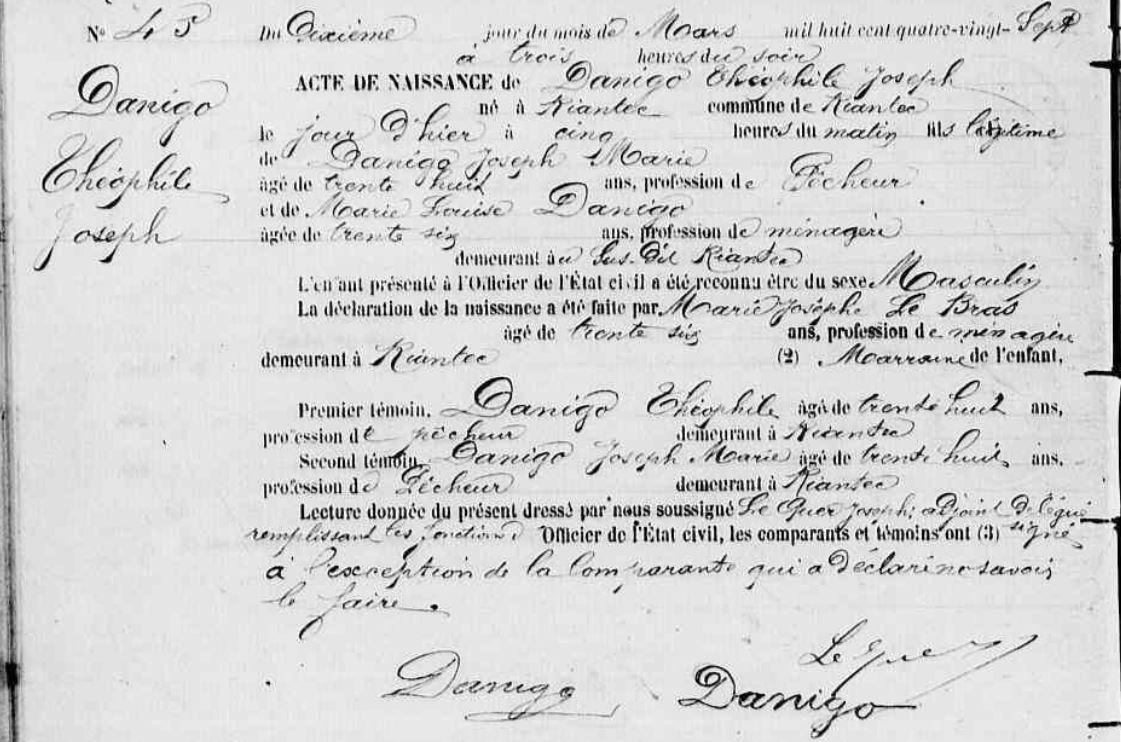 N° 45
Danigo
Théophile
Joseph
Du Dixième jour du mois de Mars mil huit cent quatre-vingt- Sept
à trois heures du soir
ACTE DE NAISSANCE de Danigo Théophile Joseph
né à Riantec commune de Riantec
le jour d'hier à cinq heures du matin fils légitime
de Danigo Joseph Marie
âgé de trente huit ans, profession de Pêcheur
et de Marie Louise Danigo
âgée de trente six ans, profession de ménagère
demeurant au Sus. Dit Riantec
L'enfant présenté à l'Officier de l'État civil a été reconnu être du sexe Masculin
La déclaration de la naissance a été faite par Marie Josèphe Le Bras
âgé de trente six ans, profession de ménagère
demeurant à Riantec (2) Marraine de l'enfant.
Premier témoin. Danigo Théophile âgé de trente huit ans,
profession de pêcheur demeurant à Riantec
Second témoin. Danigo Joseph Marie âgé de trente huit ans.
profession de Pêcheur demeurant à Riantec
Lecture donnée du présent dressé par nous soussigné Le Quer Joseph, adjoint délégué
remplissant les fonctions d Officier de l'État civil, les comparants et témoins ont (3) signé
à l'exception de la Comparante qui a déclaré ne savoir
le faire.
Le Quer
Danigo Danigo